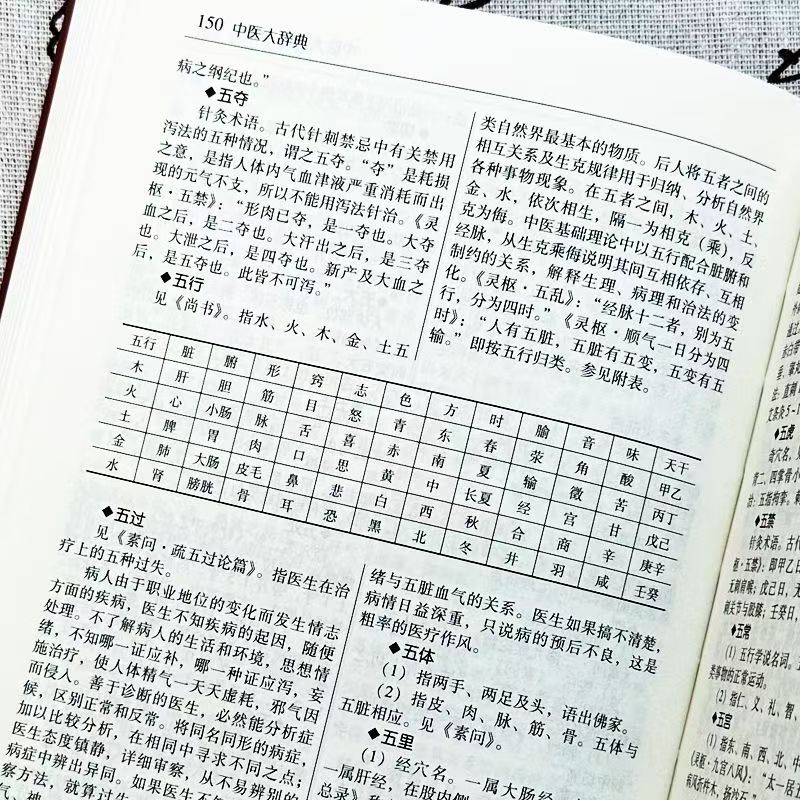 150 中医大辞典
病之纲纪也。”
◆五夺
针灸术语。古代针刺禁忌中有关禁用
泻法的五种情况，谓之五夺。“夺”是耗损
之意，是指人体内气血津液严重消耗而出
现的元气不支，所以不能用泻法针治。《灵
枢·五禁》：“形肉已夺，是一夺也。大夺
血之后，是二夺也。大汗出之后，是三夺
也。大泄之后，是四夺也。新产及大血之
后，是五夺也。此皆不可泻。”
◆五行
见《尚书》。指水、火、木、金、土五
类自然界最基本的物质。后人将五者之间的
相互关系及生克规律用于归纳、分析自然界
各种事物现象。在五者之间，木、火、土、
金、水，依次相生，隔一为相克（乘），反
克为侮。中医基础理论中以五行配合脏腑和
经脉，从生克乘侮说明其间互相依存、互相
制约的关系，解释生理、病理和治法的变
化。《灵枢·五乱》：“经脉十二者，别为五
行，分为四时。”《灵枢·顺气一日分为四
时》：“人有五脏，五脏有五变，五变有五
输。”即按五行归类。参见附表。
五行 脏 腑 形 窍 志 色 方 时 腧 音 味 天干
木 肝 胆 筋 目 怒 青 东 春 荥 角 酸 甲乙
火 心 小肠 脉 舌 喜 赤 南 夏 输 徵 苦 丙丁
土 脾 胃 肉 口 思 黄 中 长夏 经 宫 甘 戊己
金 肺 大肠 皮毛 鼻 悲 白 西 秋 合 商 辛 庚辛
水 肾 膀胱 骨 耳 恐 黑 北 冬 井 羽 咸 壬癸
◆五过
见《素问·疏五过论篇》。指医生在治
疗上的五种过失。
病人由于职业地位的变化而发生情志
方面的疾病，医生不知疾病的起因，随便
处理。不了解病人的生活和环境，思想情
绪，不知哪一证应补，哪一种证应泻，妄
施治疗，使人体精气一天天虚耗，邪气因
而侵入。善于诊断的医生，必然能分析症
候，区别正常和反常。将同名同形的病症，
加以比较分析，在相同中寻求不同之点；
医生态度镇静，详细审察，从不易辨别的
病症中辨出异同。如果医生不
察方法，就算过
气、神
绪与五脏血气的关系。医生如果搞不清楚，
病情日益深重，只说病的预后不良，这是
粗率的医疗作风。
◆五体
（1）指两手、两足及头，语出佛家。
（2）指皮、肉、脉、筋、骨。五体与
五脏相应。见《素问》。
◆五里
（1）经穴名。一属大肠经
一属肝经，在股内侧
总录》
◆五虎
奇穴名，
◆五禁
针灸术语。古代
枢·五禁》：即甲乙日
五刺肩喉；戊己日，
刺关节与股膝；壬癸日，
◆五常
（1）五行学说名词。
类事物的正常运动。
（2）指仁、义、礼、智、
◆五宫
（1）指东、南、西、北、中
《灵枢·九宫八风》：“太一居